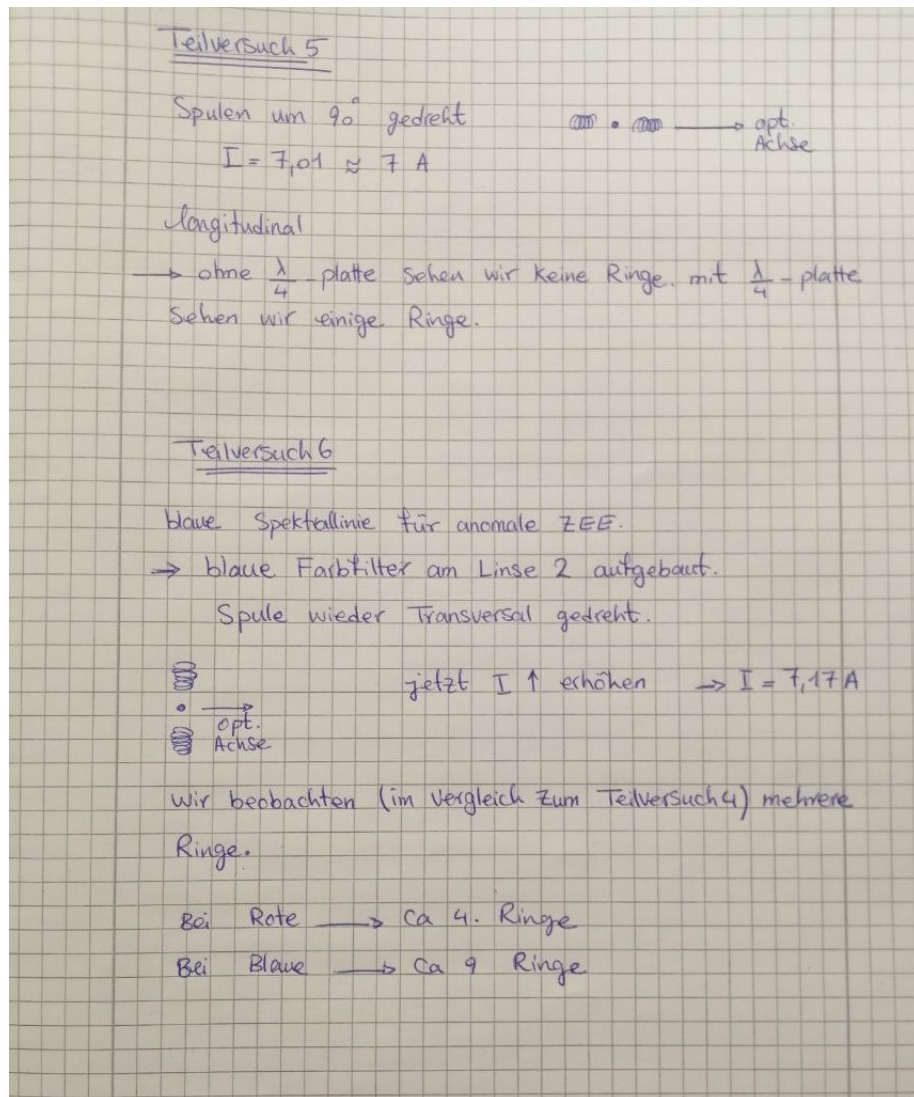 Teilversuch 5
Spulen um 90° gedreht
opt.
Achse
I = 7,01 ≈ 7 A
longitudinal
→ ohne λ/4 - platte sehen wir keine Ringe. mit λ/4 - platte
sehen wir einige Ringe.
Teilversuch 6
blaue Spektallinie für anomale ZEE.
→ blaue Farbfilter am Linse 2 aufgebaut.
Spule wieder Transversal gedreht.
jetzt I ↑ erhöhen → I = 7,17 A
opt.
Achse
Wir beobachten (im Vergleich zum Teilversuch 4) mehrere
Ringe.
Bei Rote → Ca 4. Ringe
Bei Blaue → Ca 9 Ringe